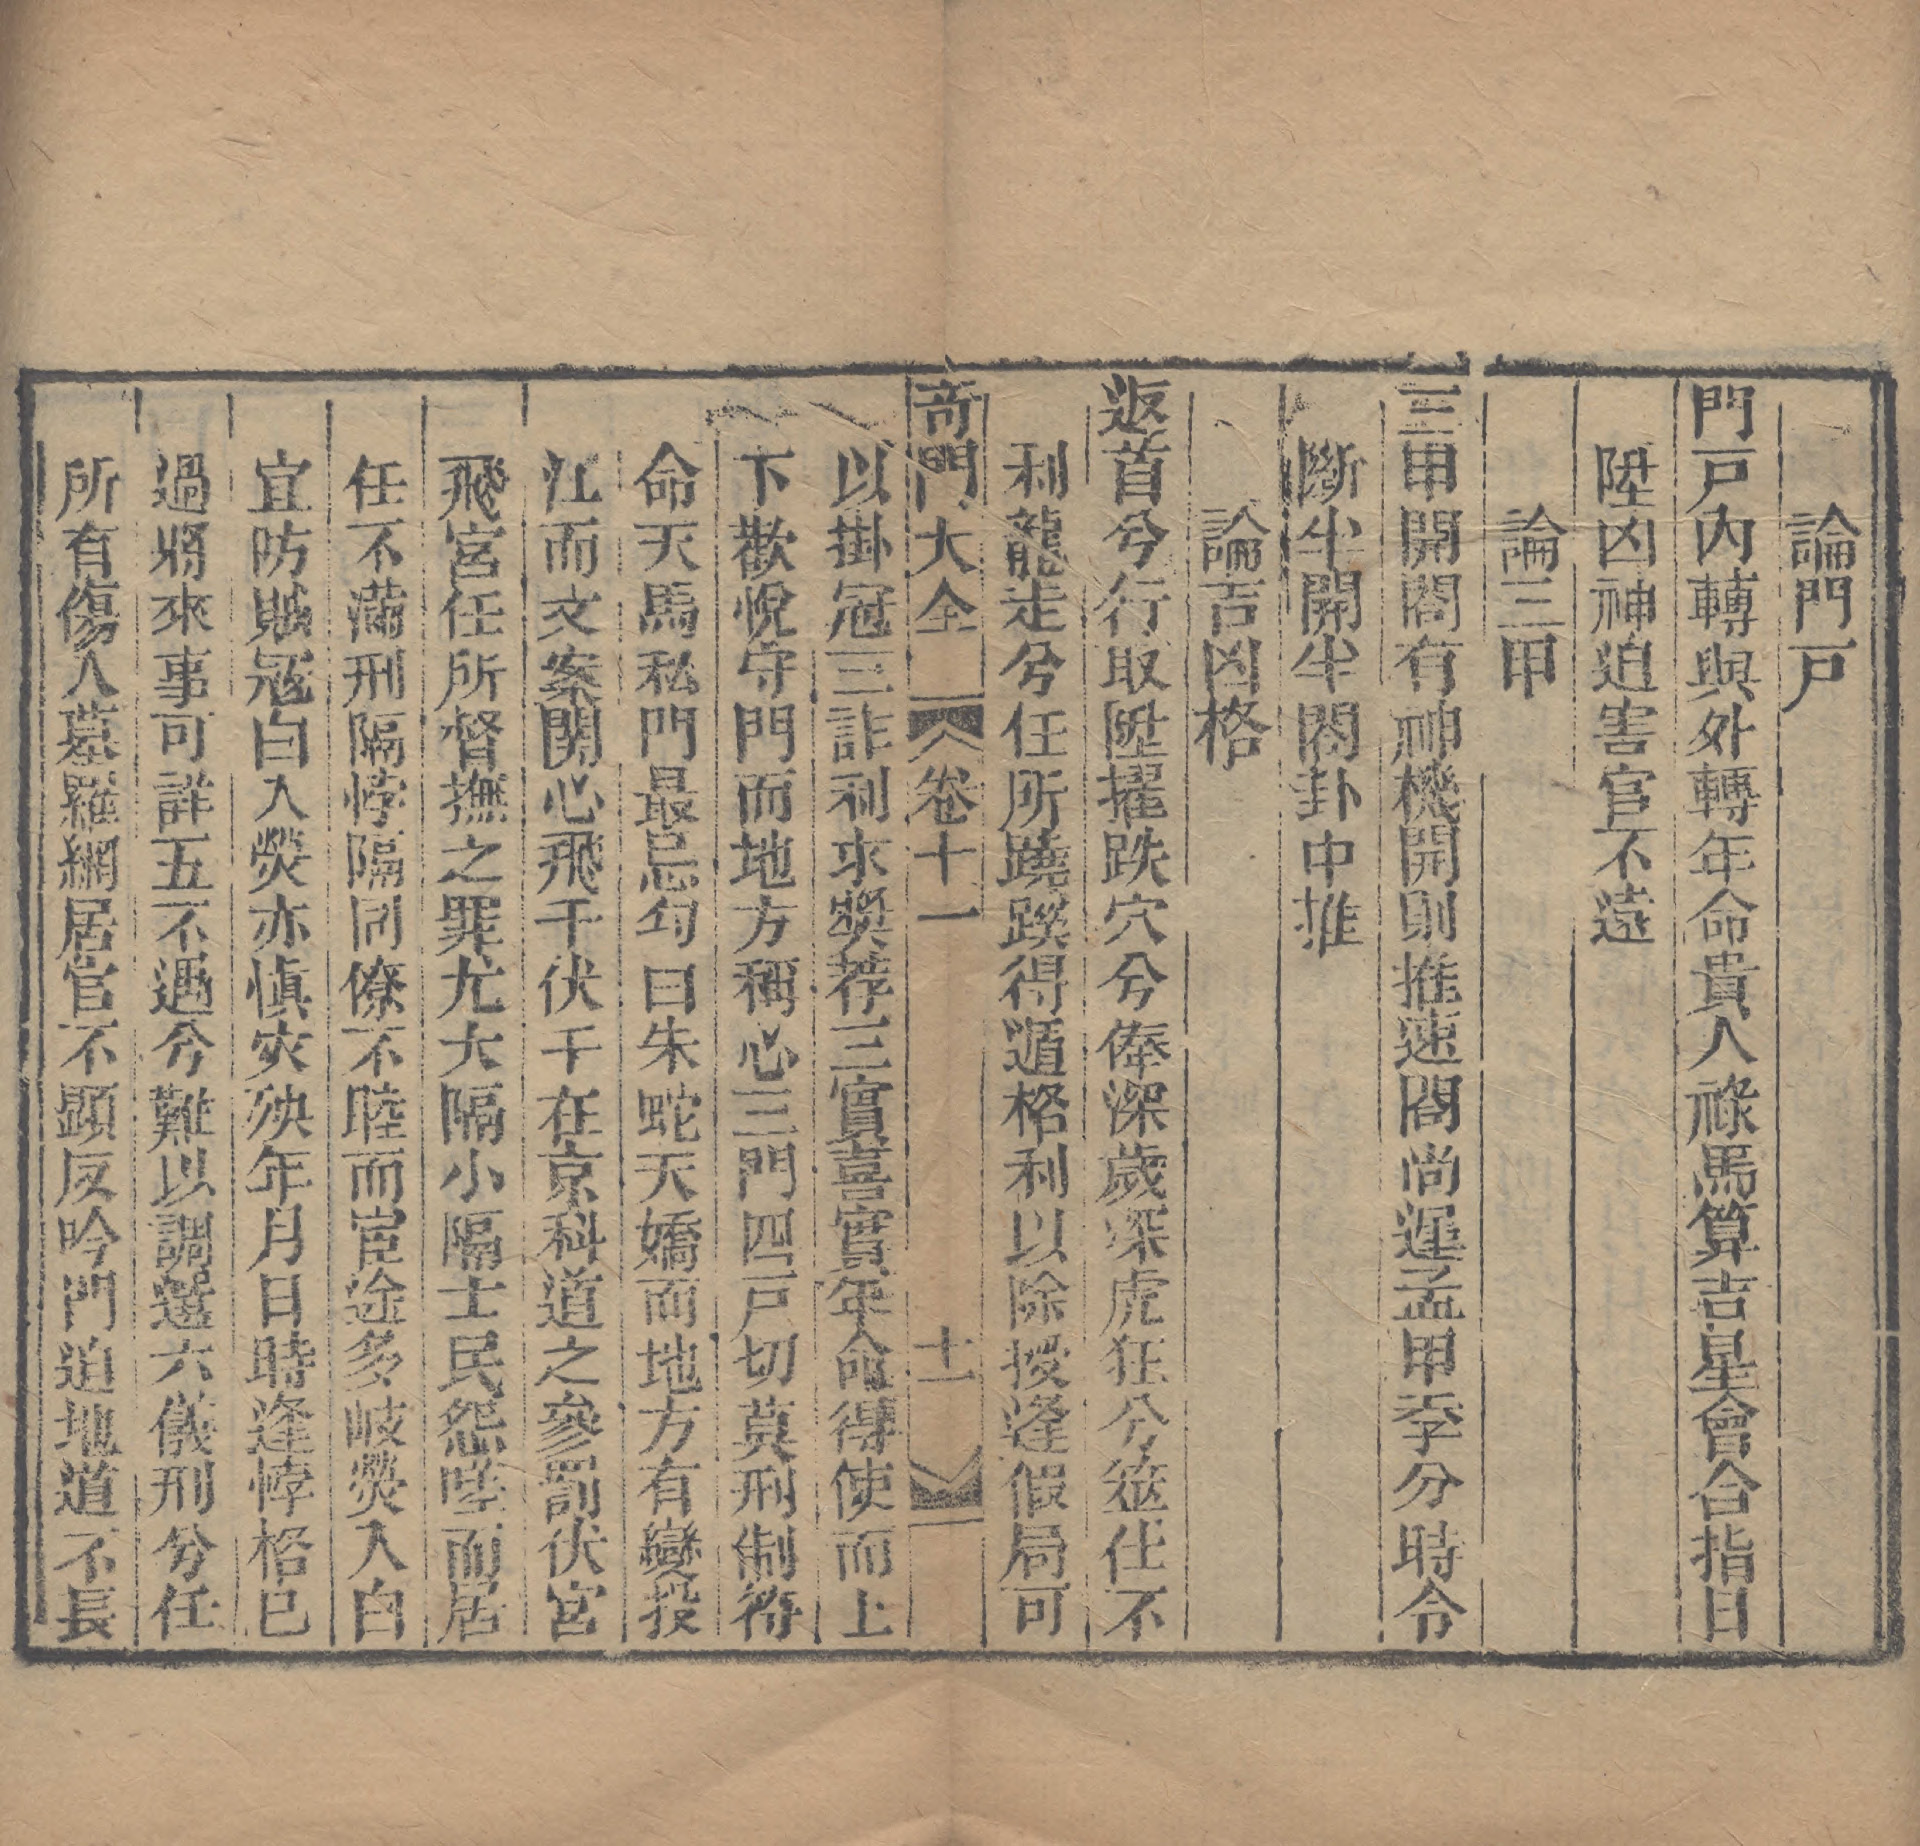 論門戸
門戸内轉與外轉年命貴人祿馬算吉星會合指日
陞凶神迫害官不遠
論三甲
三甲開閤有神機開則推速閤尚遲孟甲季分時令
斷半開半閤卦中推
論吉凶格
返首兮行取陞擢跌穴兮俸深歲深虎狂兮筮仕不
利龍走兮任所蹺蹊得遁格利以除授逢假局可
奇門大全 卷十一 十一
以掛冠三詐利求奬荐三實喜實年命得使而上
下歡悅守門而地方稱心三門四戸切莫刑制符
命天馬私門最忌勾曰朱蛇天嬌而地方有變投
江而文案関心飛干伏干在京科道之參罰伏宮
飛宮任所督撫之罪尤大隔小隔士民怨嗟而居
任不滿刑隔悖隔同僚不睦而宦途多岐熒入白
宜防賊冦白入熒亦慎灾殃年月日時逢悖格已
過將來事可詳五不遇兮難以調選六儀刑兮任
所有傷入墓羅網居官不顕反吟門迫地道不長